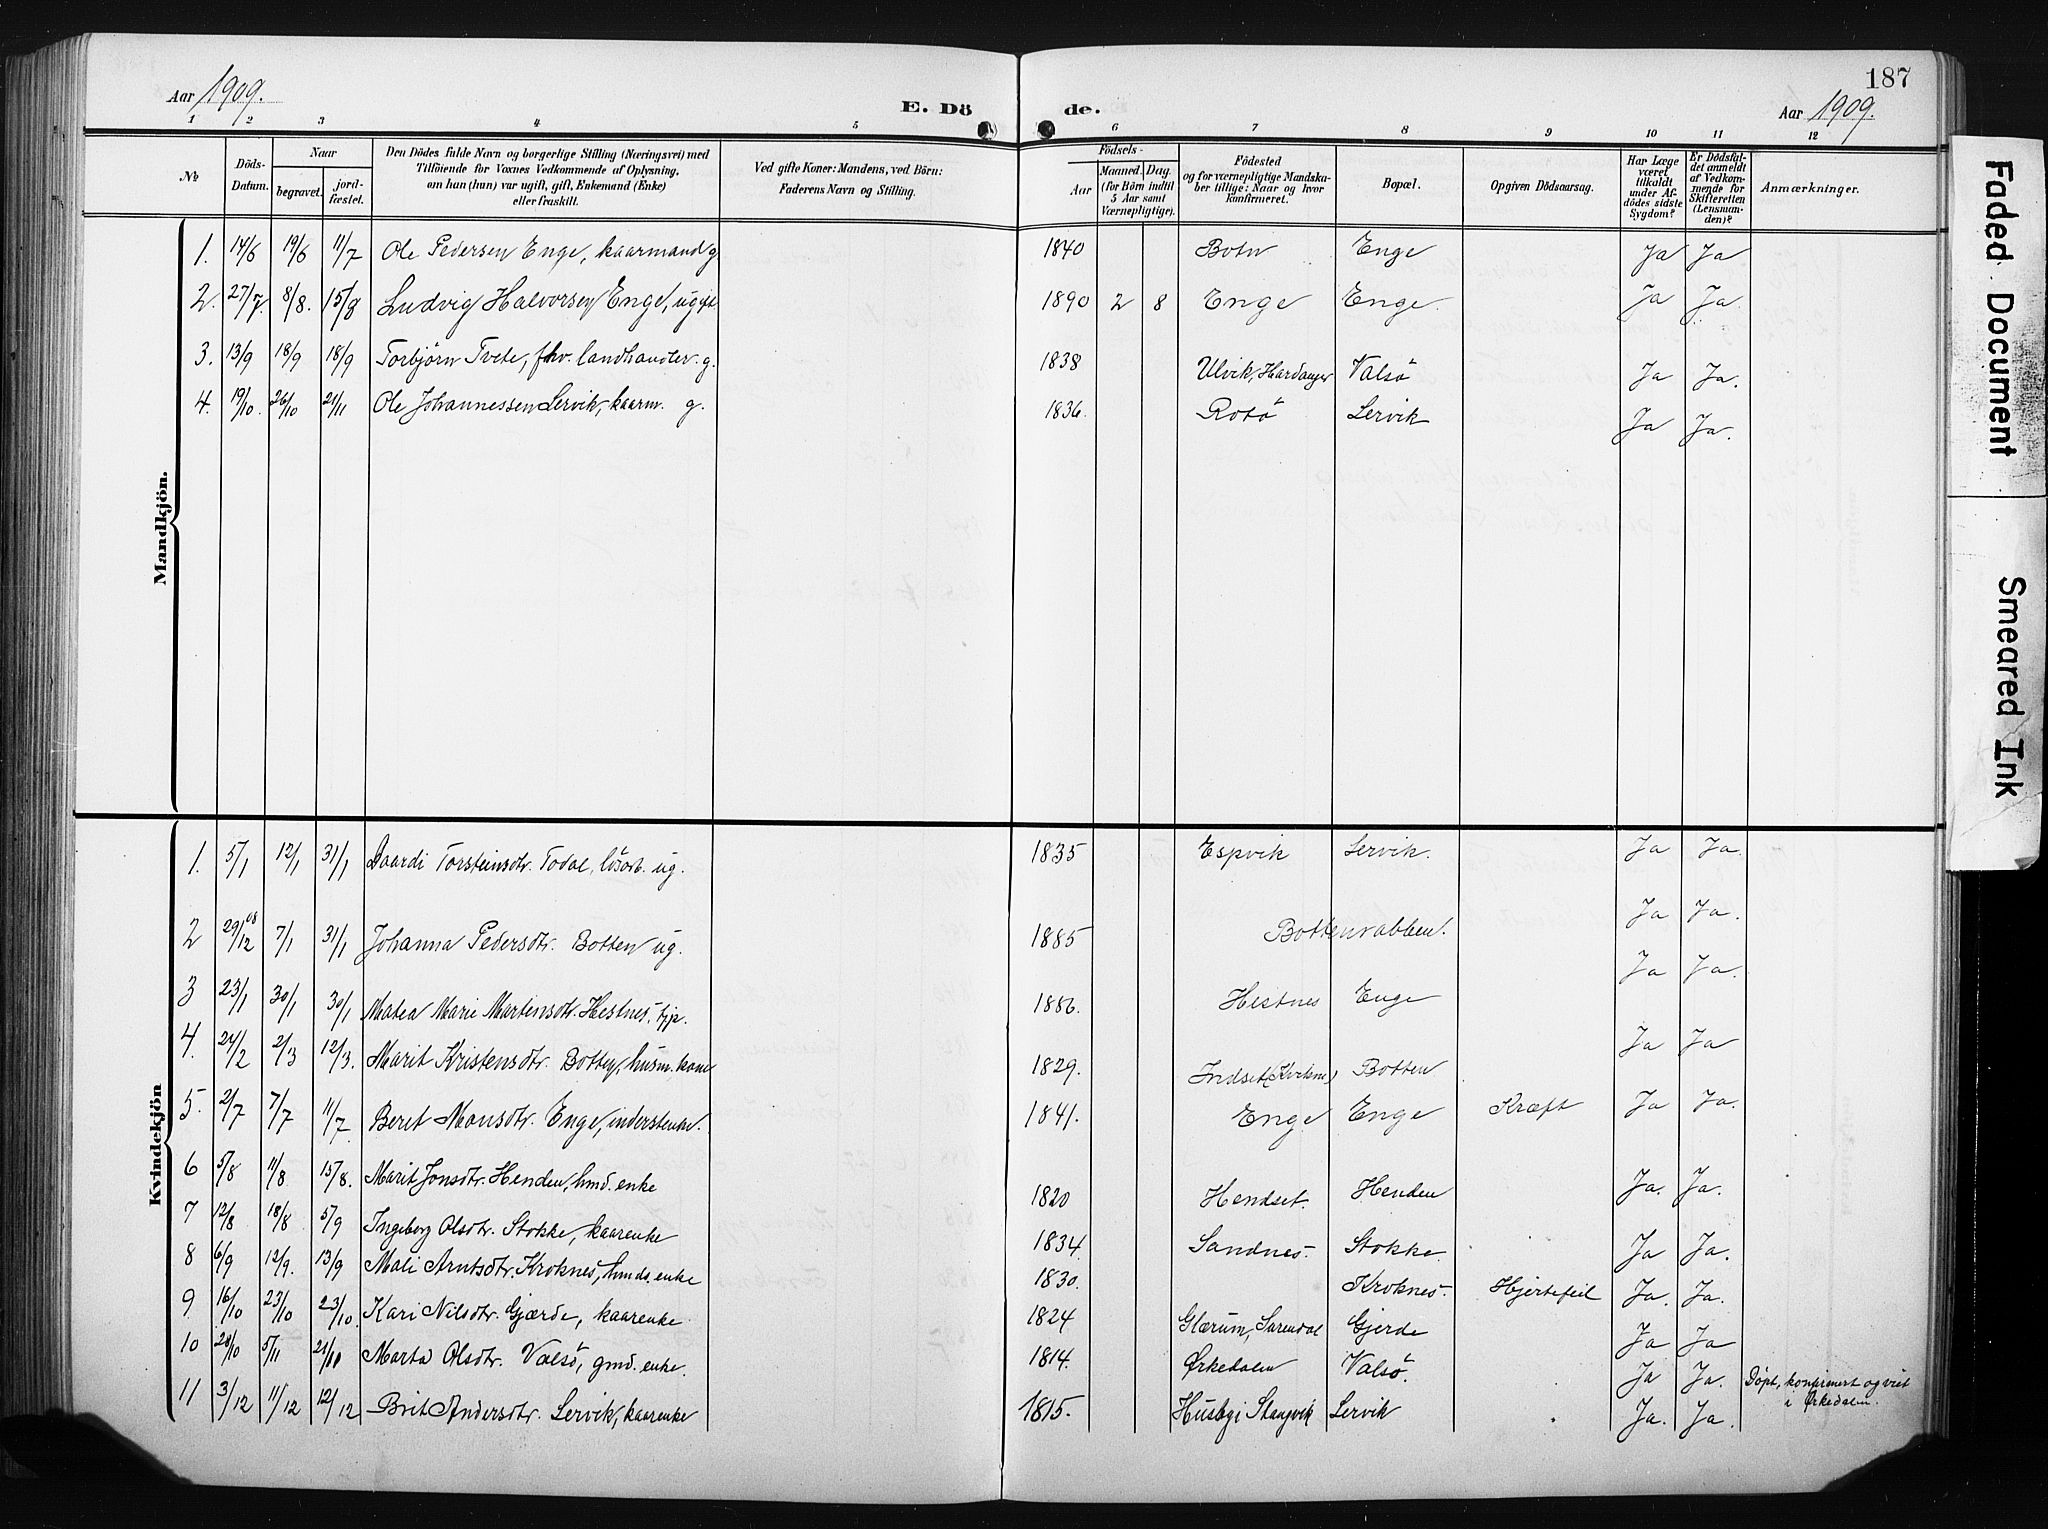 187
Aar 1909.
E. Döde.
Aar 1909.
1 2 3 4 5 6 7 8 9 10 11 12
№
Döds-Datum.
Naar
begravet.
jord-fæstet.
Den Dödes fulde Navn og borgerlige Stilling (Næringsvei) med
Tilföiende for Voxnes Vedkommende af Oplysning.
om han (hun) var ugift, gift, Enkemand (Enke)
eller fraskilt.
Ved gifte Koner: Mandens, ved Börn:
Faderens Navn og Stilling.
Födsels-
Aar
Maaned. Dag.
(for Börn indtil
5 Aar samt
Værnepligtige).
Födested
og for værnepligtige Mandska-
ber tillige: Naar og hvor
konfirmeret.
Bopæl.
Opgiven Dödsaarsag.
Har Læge
været
tilkaldt
under Af-
dödes sidste
Sygdom?
Er Dödsfal-
det anmeldt
af Vedkom-
mende for
Skifteretten
(Lensman-
den)?
Anmærkninger.
Mandkjön.
1. 14/6 19/6 11/7 Ole Pedersen Enge, kaarmand g. 1840 Botn Enge Ja Ja
2. 27/7. 8/8. 15/8 Ludvig Halvorsen Enge, ugift. 1890 2 8 Enge Enge. Ja Ja.
3. 13/9 18/9 18/9 Torbjörn Tvete, fhv. landhandler. g. 1838 Ulvik, Hardanger Valsö Ja Ja.
4. 19/10. 26/10 21/11 Ole Johannessen Lervik, kaarm. g. 1836. Rotö Lervik Ja Ja.
Kvindekjön
1. 5/1 12/1 31/1 Baardi Torsteinsdtr. Todal, lösarb. ug. 1835 Espvik Lervik. Ja Ja.
2 29/12 08 7/1 31/1 Johanna Pedersdtr. Botten ug. 1885 Bottenrabben. Ja Ja.
3 23/1 30/1 30/1 Matea Marie Martensdtr. Hestnes, tjp. 1886. Hestnes Enge Ja Ja.
4. 24/2 2/3 12/3. Marit Kristensdtr. Botten, husm. kone 1829. Indset (Kvikne) Botten Ja Ja
5. 2/7 7/7 11/7. Beret Monsdtr. Enge, inderstenke. 1841. Enge Enge Kræft Ja Ja.
6 5/8 11/8 15/8. Marit Jonsdtr. Henden, hmd. enke 1820 Hendset. Henden Ja. Ja.
7 12/8 18/8 5/9 Ingeborg Olsdtr. Stokke, kaarenke 1834. Sandnes. Stokke. Ja Ja.
8 6/9 12/9. 13/9 Mali Arntsdtr. Kroknes, hmds. enke 1830. Kroknes. Hjertefeil Ja. Ja.
9 16/10 23/10 23/10. Kari Nilsdtr. Gjærde, kaarenke. 1824 Glærum, Surendal Gjerde Ja Ja
10 20/10 5/11 21/11 Marta Olsdtr. Valsö, gmd. enke. 1814. Ørkedalen Valsö. Ja Ja. Döpt, konfirmert og viet
i Ørkedalen.
11 3/12 11/12 12/12 Brit Andersdtr. Lervik, kaarenke 1815. Husbyi Stangvik Lervik Ja. Ja.
Faded Document
Smeared Ink